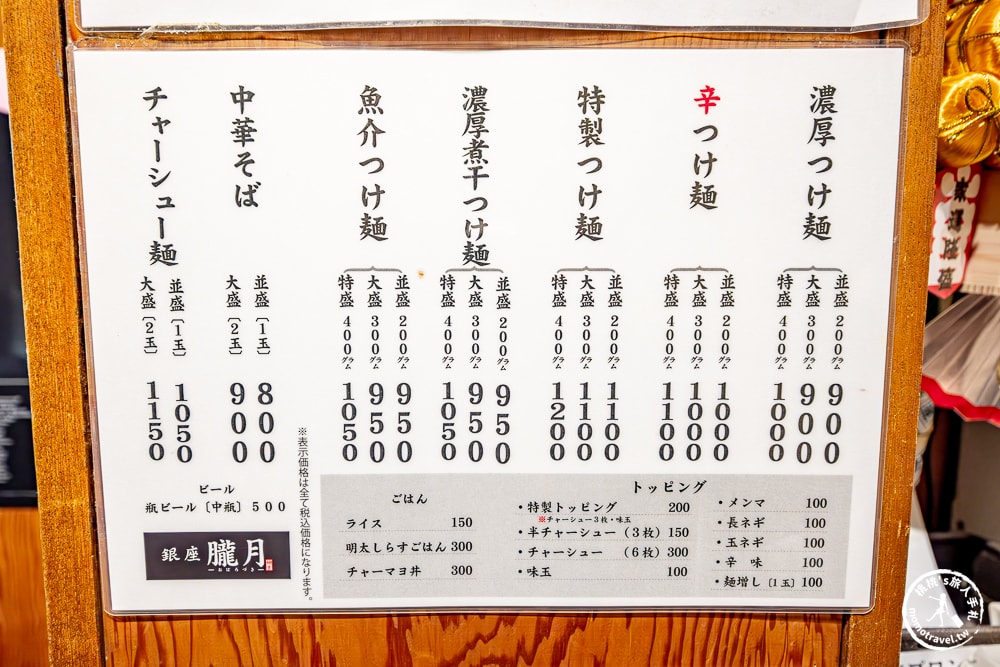 濃厚つけ麺
並盛 200グラム 900
大盛 300グラム 900
特盛 400グラム 1000
辛つけ麺
並盛 200グラム 1000
大盛 300グラム 1000
特盛 400グラム 1100
特製つけ麺
並盛 200グラム 1100
大盛 300グラム 1100
特盛 400グラム 1200
濃厚煮干つけ麺
並盛 200グラム 950
大盛 300グラム 950
特盛 400グラム 1050
魚介つけ麺
並盛 200グラム 950
大盛 300グラム 950
特盛 400グラム 1050
中華そば
並盛〔1玉〕 800
大盛〔2玉〕 900
チャーシュー麺
並盛〔1玉〕 1050
大盛〔2玉〕 1150
※表示価格は全て税込価格になります。
トッピング
・特製トッピング 200
※チャーシュー3枚・味玉
・半チャーシュー（3枚）150
・チャーシュー （6枚）300
・味玉 100
・メンマ 100
・長ネギ 100
・玉ネギ 100
・辛 味 100
・麺増し〔1玉〕100
ごはん
ライス 150
明太しらすごはん 300
チャーマヨ丼 300
ビール
瓶ビール〔中瓶〕500
銀座 朧月
おぼろづき
桃桃's旅人手札
momotravel.tw